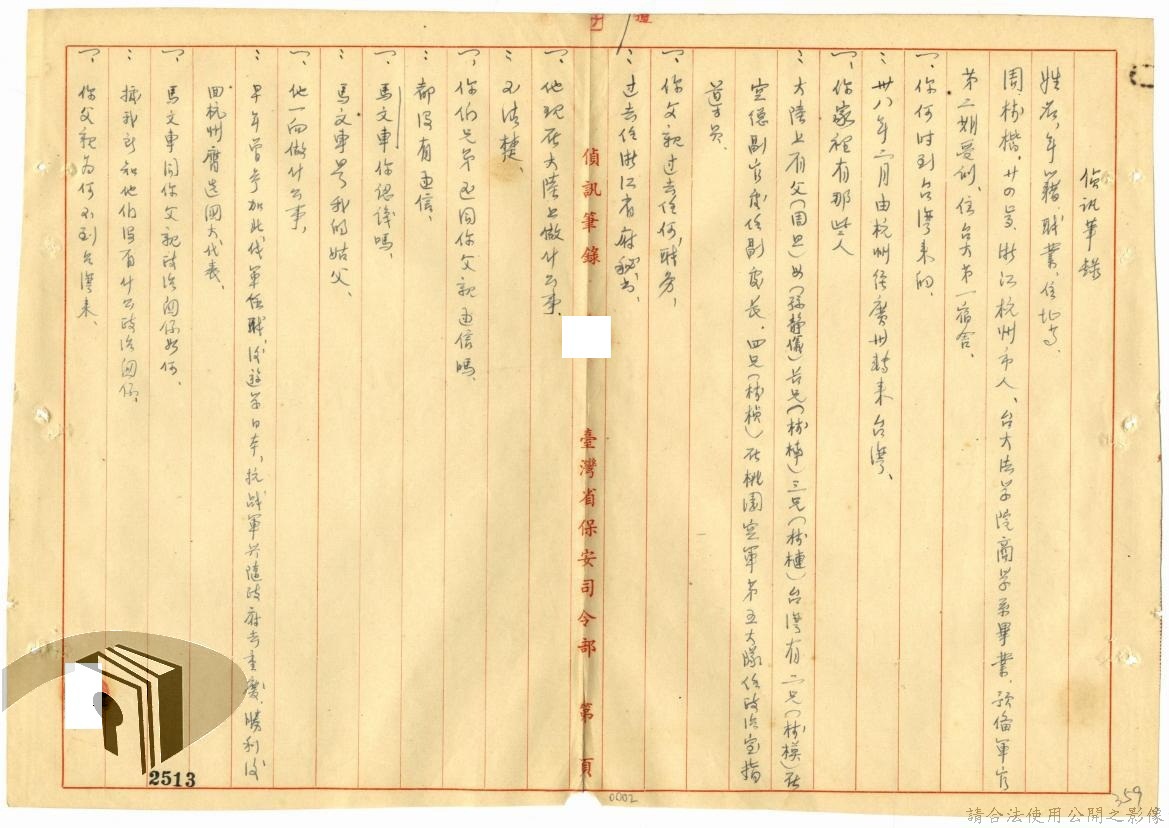 偵訊筆錄
姓名、年籍、職業、住址等、
周樹楷、廿四歲、浙江杭州市人、台大法学院商学系畢業、預備軍官
第二期受訓、住台大第一宿舍、
一、你何时到台灣来的、
：卅八年二月由杭州經廣州轉来台灣、
一、你家裡有那些人
：大陸上有父（周旦）母（孫靜儀）長兄（樹棒）三兄（樹槤）台灣有二兄（樹模）在
空總副官處任副處長、四兄（樹楨）在桃園空軍第五大隊任政治室指
導員、
一、你父親过去任何職务、
：过去任浙江省府秘书、
偵訊筆錄 臺灣省保安司令部 第 頁
一、他現在大陸上做什么事、
：不清楚、
一、你们兄弟还同你父親通信嗎、
：都没有通信、
一、馬文車你認識嗎、
：馬文車是我的姑父、
一、他一向做什么事、
：早年曾参加北伐軍任職、後遊学日本、抗战軍兴隨政府去重慶、勝利後
回杭州膺选國大代表、
一、馬文車同你父親政治関係如何、
：據我所知他们没有什么政治関係、
一、你父親为何不到台灣来、
2513
0002
359
請合法使用公開之影像